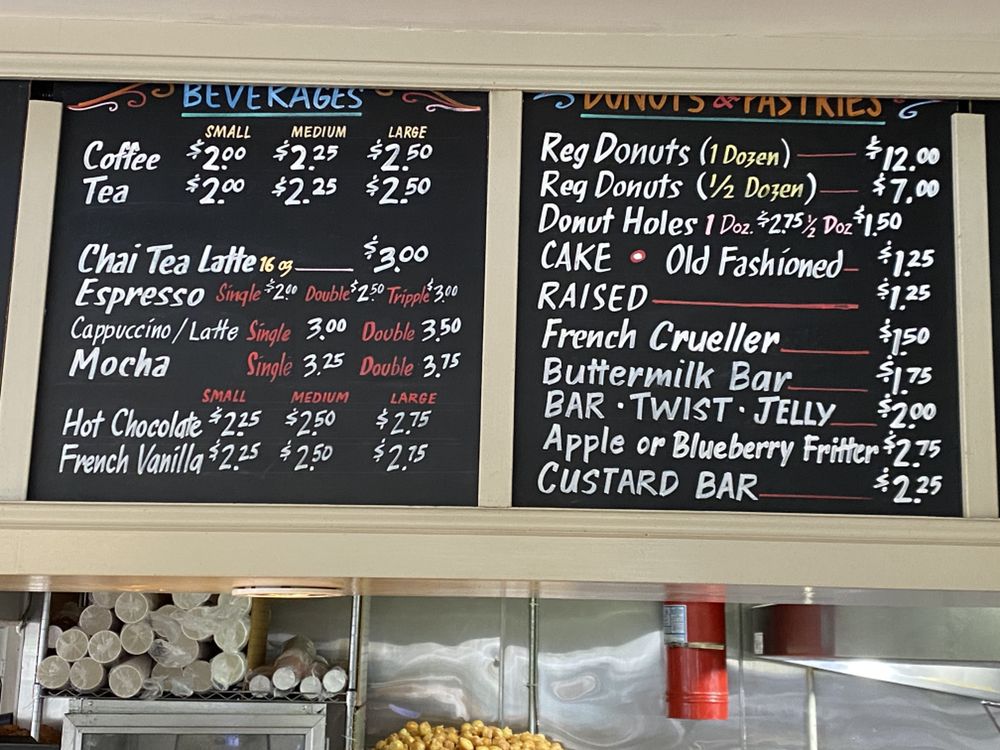 BEVERAGES
SMALL MEDIUM LARGE
Coffee $2.00 $2.25 $2.50
Tea $2.00 $2.25 $2.50
Chai Tea Latte 16 oz $3.00
Espresso Single $2.00 Double $2.50 Tripple $3.00
Cappuccino / Latte Single 3.00 Double 3.50
Mocha Single 3.25 Double 3.75
SMALL MEDIUM LARGE
Hot Chocolate $2.25 $2.50 $2.75
French Vanilla $2.25 $2.50 $2.75
DONUTS & PASTRIES
Reg Donuts (1 Dozen) $12.00
Reg Donuts (1/2 Dozen) $7.00
Donut Holes 1 Doz. $2.75 1/2 Doz $1.50
CAKE • Old Fashioned $1.25
RAISED $1.25
French Crueller $1.50
Buttermilk Bar $1.75
BAR · TWIST · JELLY $2.00
Apple or Blueberry Fritter $2.75
CUSTARD BAR $2.25